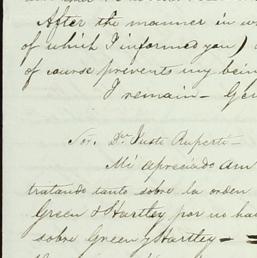 After the manner in w
of which I informed you)
of course prevents my bein
I remain - Gen
Sor. Dn. Justo Ruperti -
Mi apreciado am
tratando tanto sobre la orden
Green & Hartley por us ha
sobre Green y Hartley -